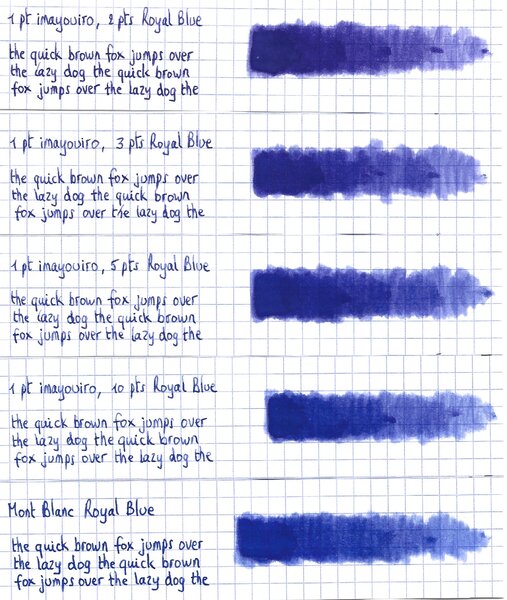 1 pt imayouiro, 2 pts Royal Blue
the quick brown fox jumps over
the lazy dog the quick brown
fox jumps over the lazy dog the
1 pt imayouiro, 3 pts Royal Blue
the quick brown fox jumps over
the lazy dog the quick brown
fox jumps over the lazy dog the
1 pt imayouiro, 5 pts Royal Blue
the quick brown fox jumps over
the lazy dog the quick brown
fox jumps over the lazy dog the
1 pt imayouiro, 10 pts Royal Blue
the quick brown fox jumps over
the lazy dog the quick brown
fox jumps over the lazy dog the
Mont Blanc Royal Blue
the quick brown fox jumps over
the lazy dog the quick brown
fox jumps over the lazy dog the